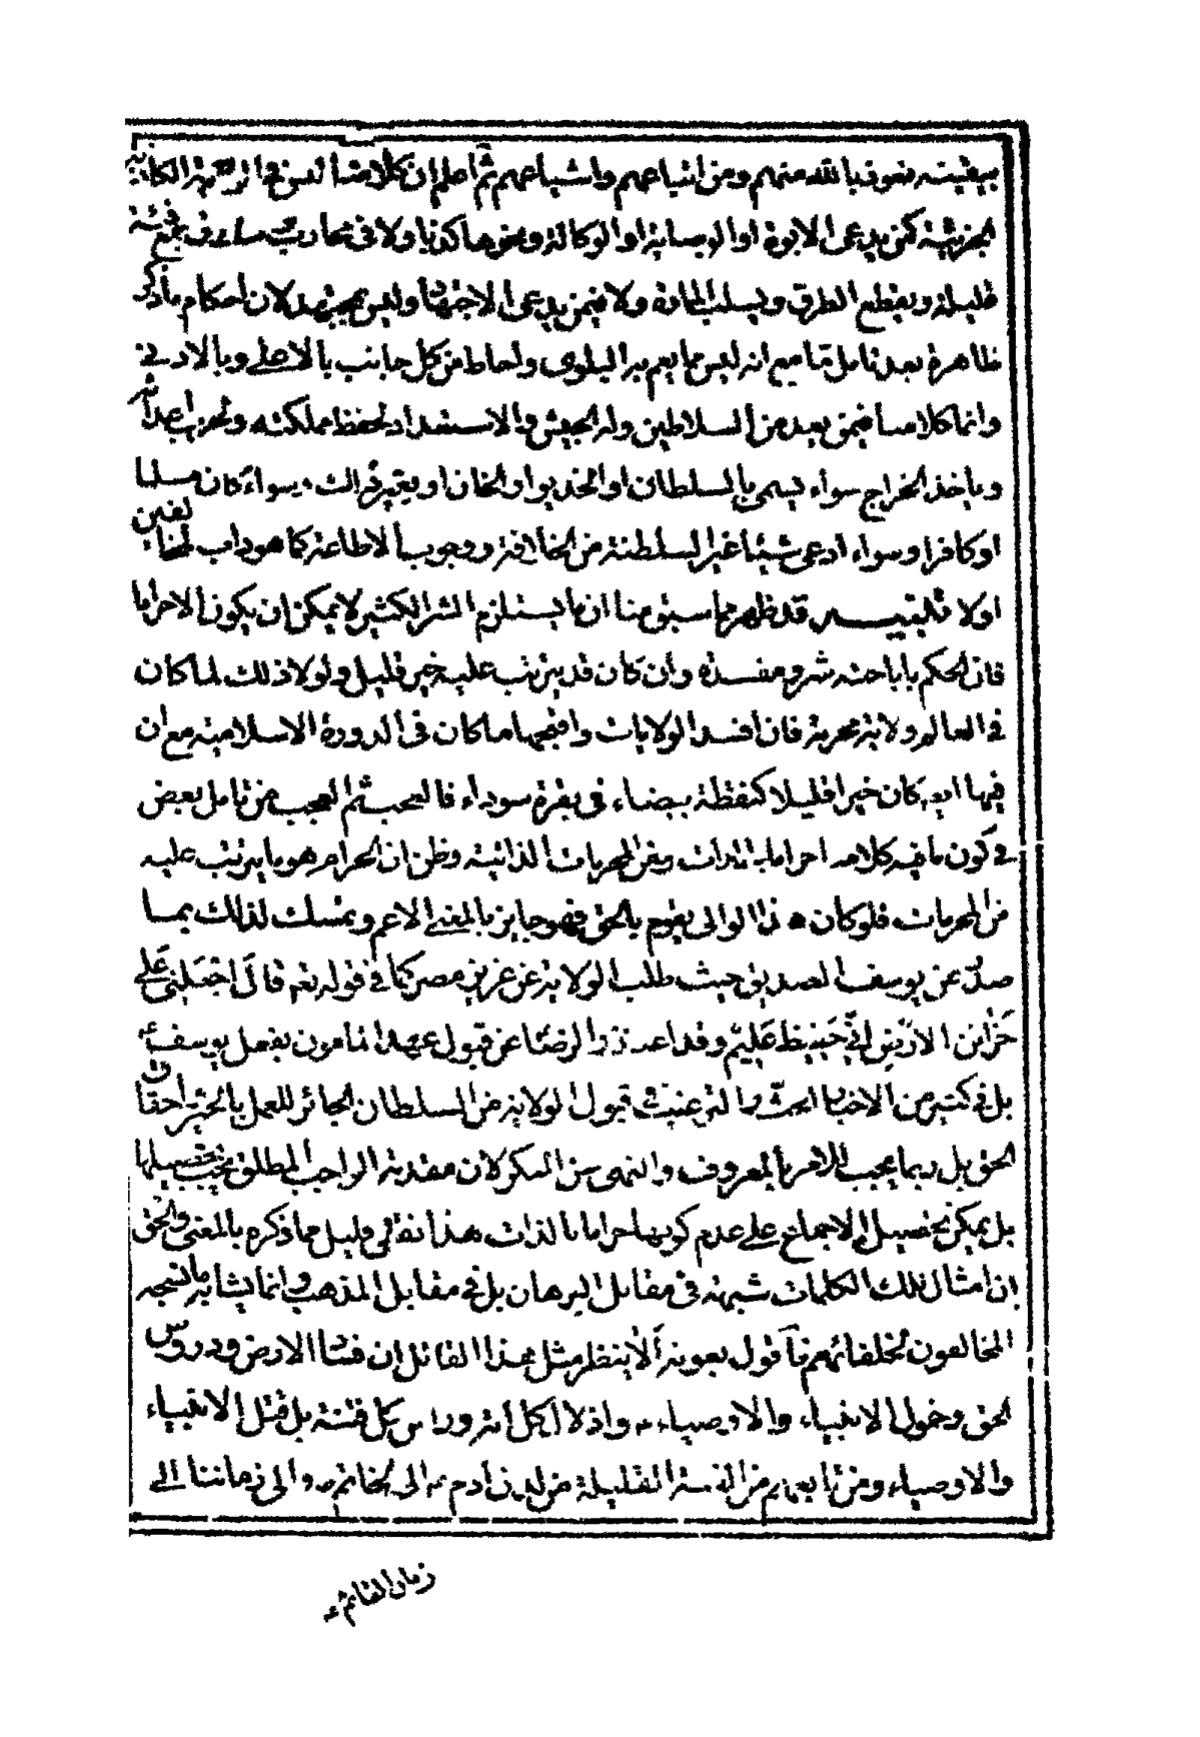 بيقينه نعوذ بالله منهم ومن اتباعهم واشياعهم ثم اعلم ان كلامنا ليس في
الجزئية كمن يدعى الابوة او الوصاية او الوكالة ونحوها كذبا ولا في محارب
قليلة ويقطع الطرق ويسلب المارة ولا فيمن يدعى الاجتهاد وليس بمجتهد لان احكام ما ذكر
ظاهرة بعد تامل ما مع انه ليس مما يعم به البلوى واحاط من كل جانب بالاعلى وبالادنى
وانما كلامنا فيمن يعد من السلاطين وله الجيش والاستعداد لحفظ مملكته
وياخذ الخراج سواء يسمى بالسلطان او الخديو او الخان او بغير ذلك وسواء كان مسلما
او كافرا وسواء ادعى شيئا غير السلطنة من الخلافة ووجوب الاطاعة كما هو داب المخالفين
اولا تنبيه قد ظهر مما سبق منا ان ما يستلزم الشر الكثير لا يمكن ان يكون الا حراما
فان الحكم باباحته شر ومفسدة وان كان قد يترتب عليه خير قليل ولولا ذلك لما كان
في العالم ولاية محرمة فان افسد الولايات واقبحها ما كان في الدورة الاسلامية مع ان
فيها ايضا كان خيرا قليلا كنقطة بيضاء في بقرة سوداء فالعجب ثم العجب من تامل بعض
في كون ما فيه كلامنا حراما بالذات ومن المحرمات الذاتية وظن ان الحرام هو ما يترتب عليه
من المحرمات فلو كان هذا الوالى يقوم بالحق فهو جايز بالمعنى الاعم وتمسك لذلك بما
صدر عن يوسف الصديق حيث طلب الولاية عن عزيز مصر كما في قوله تعم قال اجعلني على
خزائن الارض اني حفيظ عليم وقد اعتذر الرضا عن قبول عهد المامون بفعل يوسف ع
بل في كثير من الاخبار الحث والترغيب في قبول الولاية من السلطان الجائر للعمل بالخير واحقاق
الحق بل ربما يجب للامر بالمعروف والنهى عن المنكر لان مقدمة الواجب المطلق يجب تحصيلها
بل يمكن تحصيل الاجماع على عدم كونها حراما بالذات هذا نقل قليل مما ذكره بالمعنى والحق
ان امثال تلك الكلمات شبهة في مقابل البرهان بل في مقابل المذهب وانما يشابه
المخالفون لخلفائهم فاقول بعونه ألا ينظر مثل هذا القائل ان فتنا الارض ودروس
الحق وخمول الانبياء والاوصياء واذلال كل وراس كل فتنة بل قتل الانبياء
والاوصياء ومن تابعهم من الفئة القليلة من لدن آدم ع الى الخاتم ص والى زماننا الى
زمان القائم ع